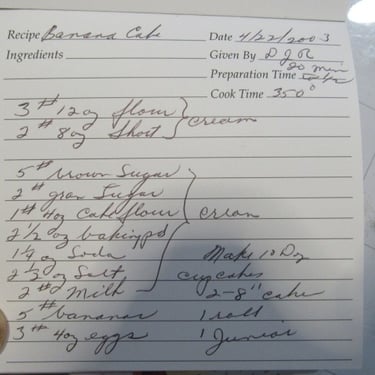 Recipe Banana Cake Date 4/22/2003
Ingredients Given By DJR
20 min
Preparation Time
Cook Time 350°
3# 12oz flour
2# 8oz Short } cream
5# brown Sugar
2# gran Sugar
1# 4oz Cake flour } cream
2 1/2 oz baking pd
1 1/4 oz Soda Make 10 Doz
2 1/2 oz Salt cupcakes
2# Milk 2-8" cake
5# bananas 1 roll
3# 4oz eggs 1 Junior